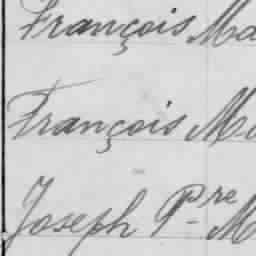 François Ma
François Ma
Joseph Pre M